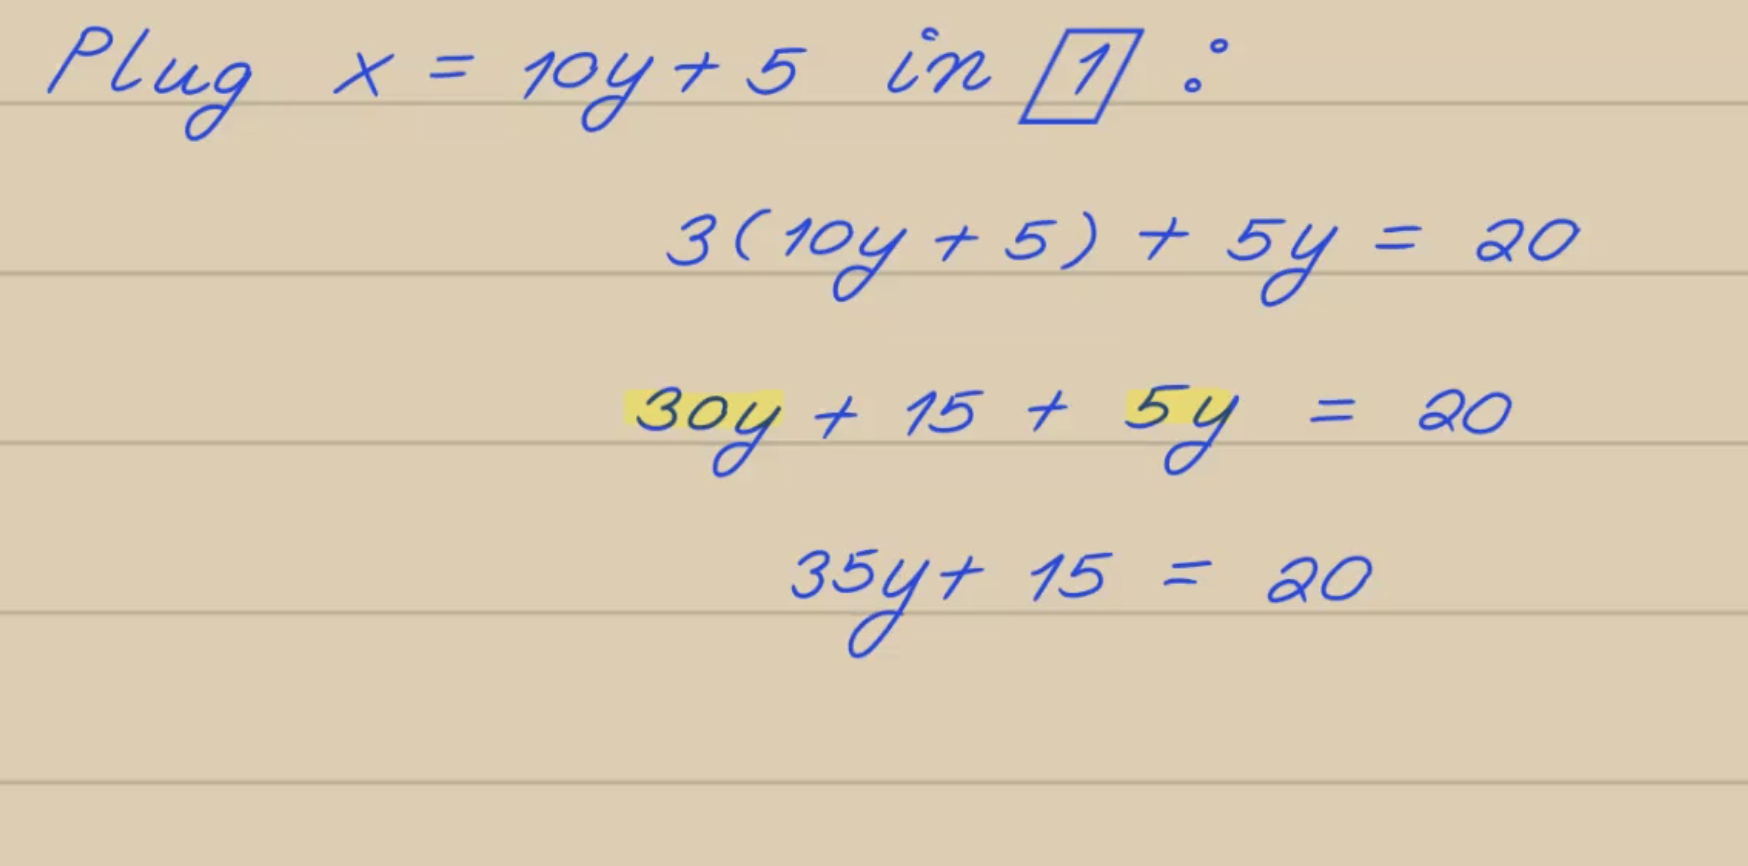 Plug x = 10y + 5 in 1 :
3(10y + 5) + 5y = 20
30y + 15 + 5y = 20
35y + 15 = 20